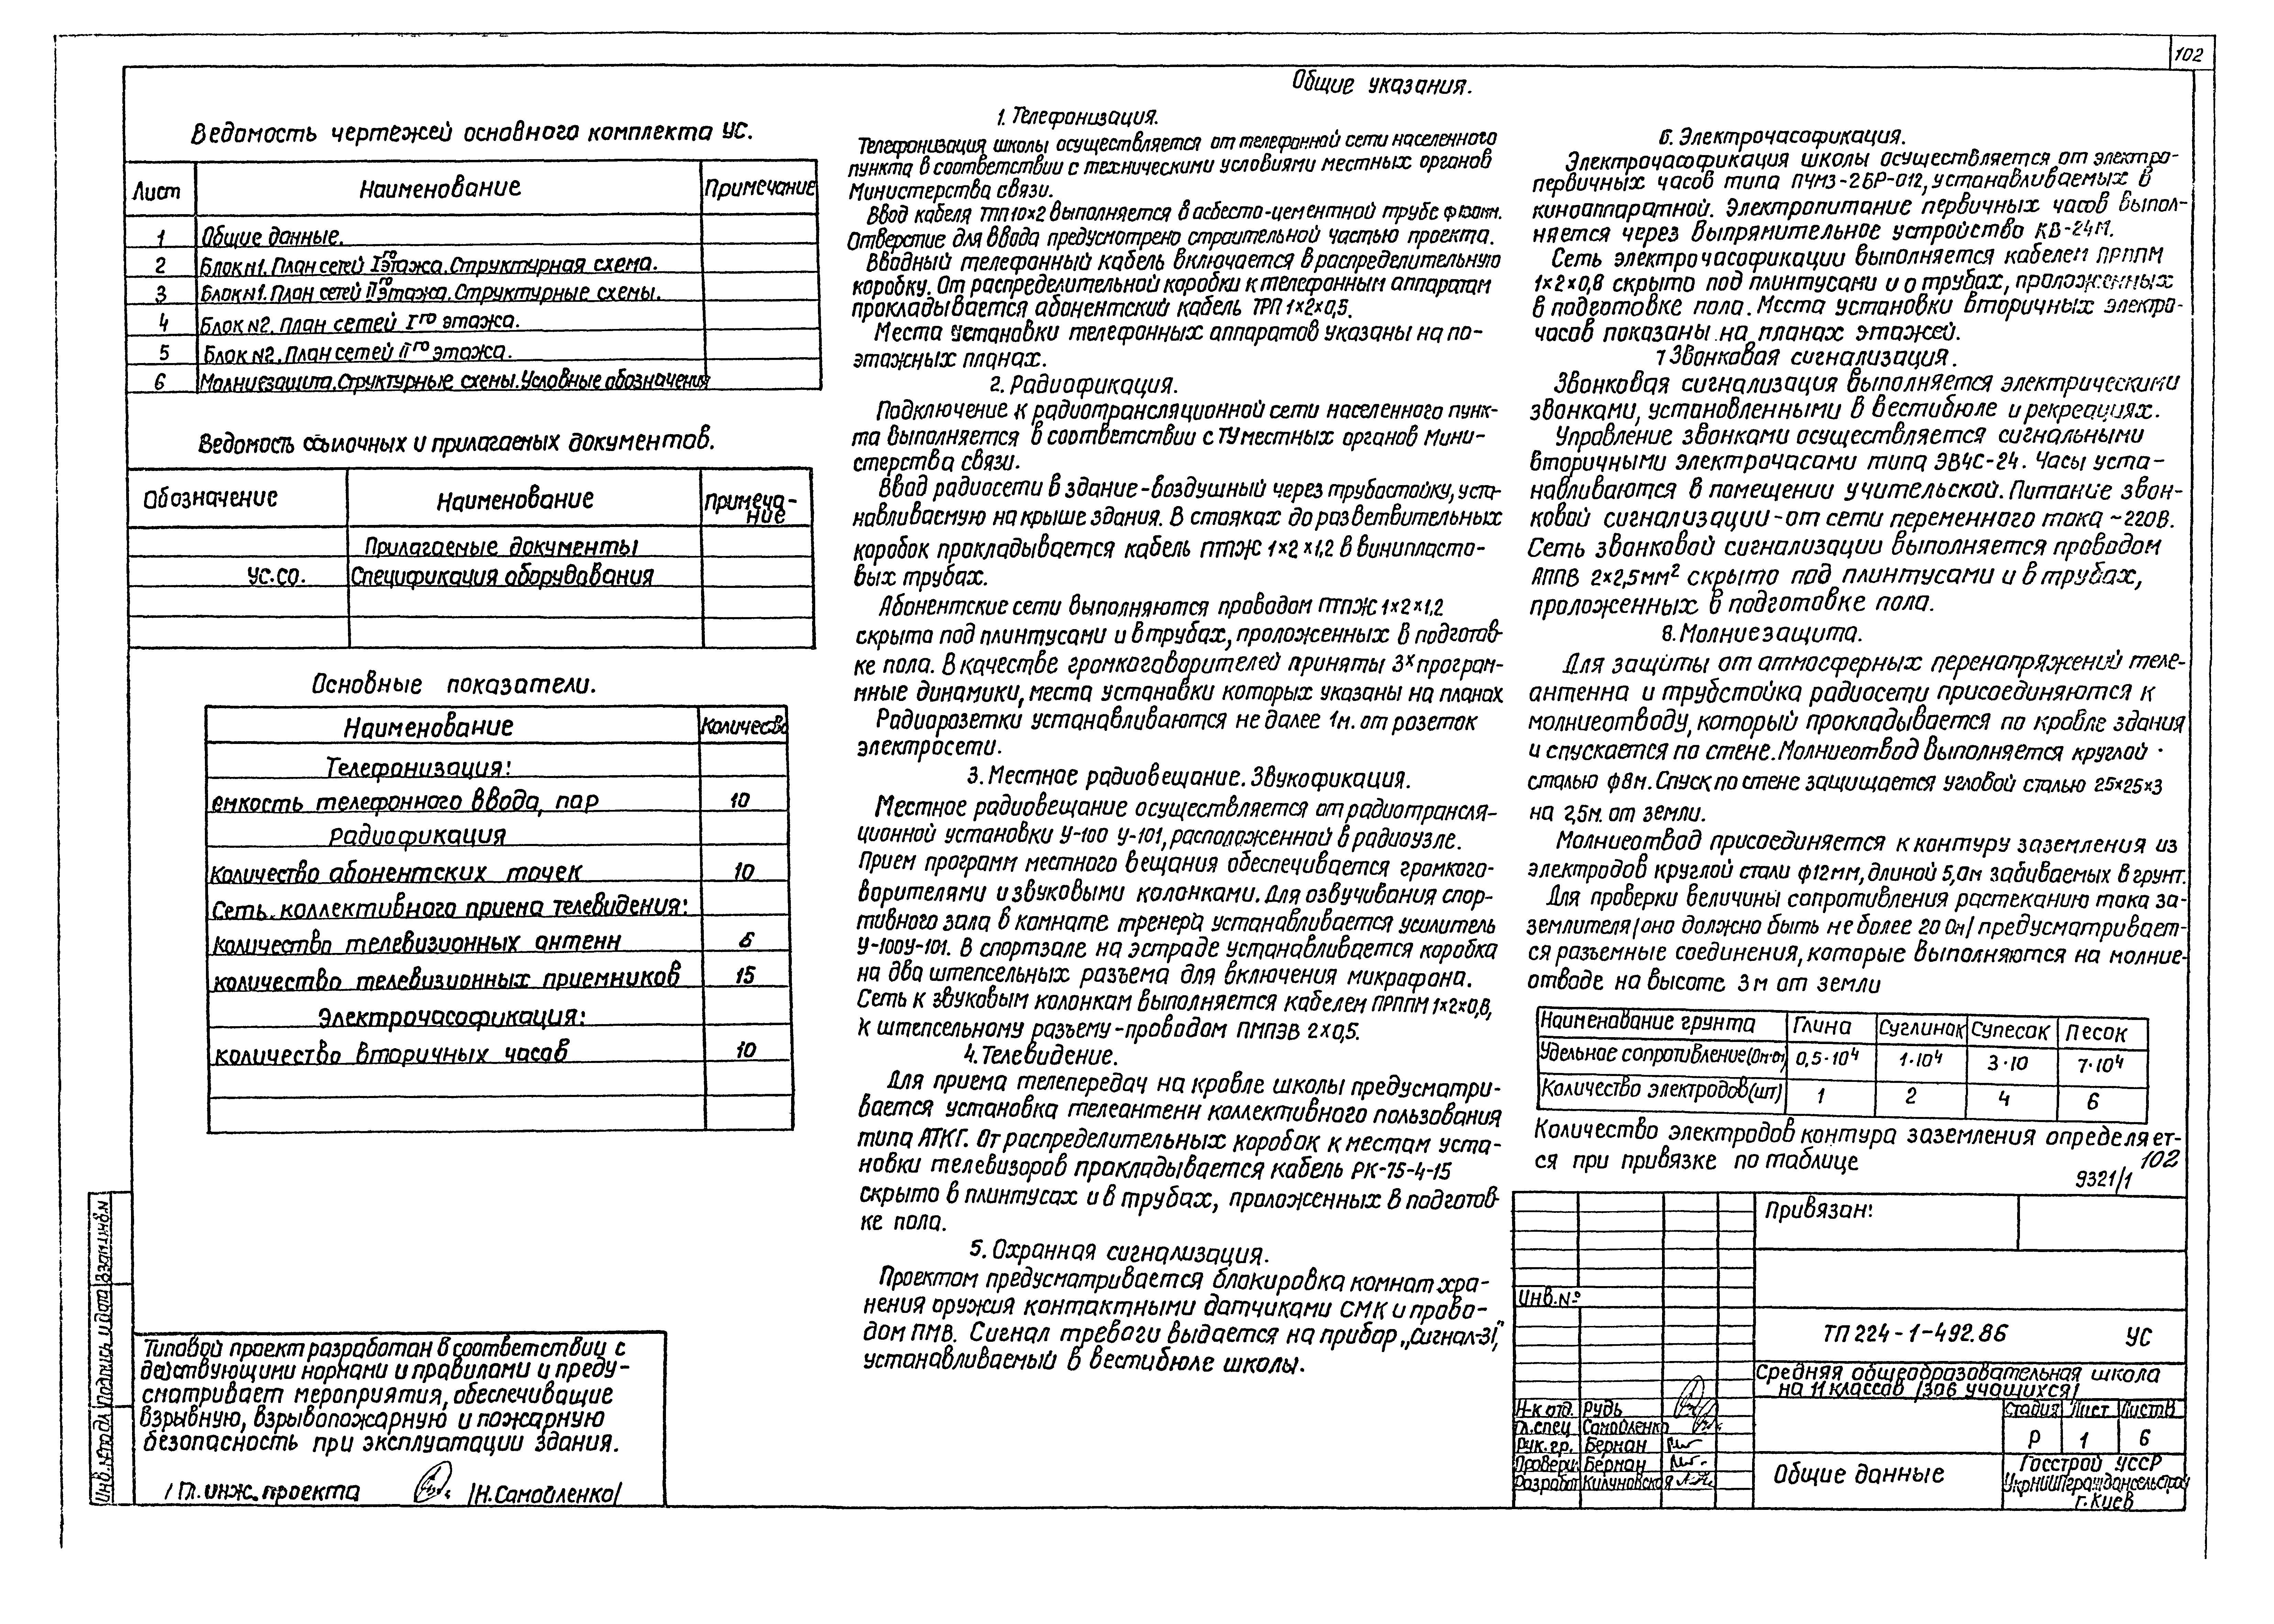 102
Общие указания.
Ведомость чертежей основного комплекта УС.
Лист Наименование Примечание
1 Общие данные.
2 Блок №1. План сетей Iго этажа. Структурная схема.
3 Блок №1. План сетей IIго этажа. Структурные схемы.
4 Блок №2. План сетей Iго этажа.
5 Блок №2. План сетей IIго этажа.
6 Молниезащита. Структурные схемы. Условные обозначения
Ведомость ссылочных и прилагаемых документов.
Обозначение Наименование Примеча-
ние
Прилагаемые документы
УС.СО. Спецификация оборудования
Основные показатели.
Наименование Количество
Телефонизация:
емкость телефонного ввода, пар 10
Радиофикация
Количество абонентских точек 10
Сеть коллективного приема телевидения:
количество телевизионных антенн 6
количество телевизионных приемников 15
Электрочасофикация:
количество вторичных часов 10
Типовой проект разработан в соответствии с
действующими нормами и правилами и преду-
сматривает мероприятия, обеспечивающие
взрывную, взрывопожарную и пожарную
безопасность при эксплуатации здания.
/Гл. инж. проекта /Н. Самойленко/
Инв.№подл Подпись и дата Взам.инв.№
1. Телефонизация.
Телефонизация школы осуществляется от телефонной сети населенного
пункта в соответствии с техническими условиями местных органов
Министерства связи.
Ввод кабеля ТПП 10×2 выполняется в асбесто-цементной трубе ф 100мм.
Отверстие для ввода предусмотрено строительной частью проекта.
Вводный телефонный кабель включается в распределительную
коробку. От распределительной коробки к телефонным аппаратам
прокладывается абонентский кабель ТРП 1×2×0,5.
Места установки телефонных аппаратов указаны на по-
этажных планах.
2. Радиофикация.
Подключение к радиотрансляционной сети населенного пунк-
та выполняется в соответствии с ТУ местных органов Мини-
стерства связи.
Ввод радиосети в здание - воздушный через трубостойку, уста-
навливаемую на крыше здания. В стояках до разветвительных
коробок прокладывается кабель ПТПЖ 1×2×1,2 в винипласто-
вых трубах.
Абонентские сети выполняются проводом ПТПЖ 1×2×1,2
скрыто под плинтусами и в трубах, проложенных в подготов-
ке пола. В качестве громкоговорителей приняты 3х програм-
мные динамики, места установки которых указаны на планах
Радиорозетки устанавливаются не далее 1м. от розеток
электросети.
3. Местное радиовещание. Звукофикация.
Местное радиовещание осуществляется от радиотрансля-
ционной установки У-100 У-101, расположенной в радиоузле.
Прием программ местного вещания обеспечивается громкого-
ворителями и звуковыми колонками. Для озвучивания спор-
тивного зала в комнате тренера устанавливается усилитель
У-100У-101. В спортзале на эстраде устанавливается коробка
на два штепсельных разъема для включения микрофона.
Сеть к звуковым колонкам выполняется кабелем ПРППМ 1×2×0,8,
к штепсельному разъему - проводом ПМПЭВ 2×0,5.
4. Телевидение.
Для приема телепередач на кровле школы предусматри-
вается установка телеантенн коллективного пользования
типа АТКГ. От распределительных коробок к местам уста-
новки телевизоров прокладывается кабель РК-75-4-15
скрыто в плинтусах и в трубах, проложенных в подготов-
ке пола.
5. Охранная сигнализация.
Проектом предусматривается блокировка комнат хра-
нения оружия контактными датчиками СМК и прово-
дом ПМВ. Сигнал тревоги выдается на прибор „Сигнал-31",
устанавливаемый в вестибюле школы.
6. Электрочасофикация.
Электрочасофикация школы осуществляется от электро-
первичных часов типа ПЧМ3-2БР-012, устанавливаемых в
киноаппаратной. Электропитание первичных часов выпол-
няется через выпрямительное устройство КВ-24М.
Сеть электрочасофикации выполняется кабелем ПРППМ
1×2×0,8 скрыто под плинтусами и о трубах, проложенных
в подготовке пола. Места установки вторичных электро-
часов показаны на планах этажей.
7 Звонковая сигнализация.
Звонковая сигнализация выполняется электрическими
звонками, установленными в вестибюле и рекреациях.
Управление звонками осуществляется сигнальными
вторичными электрочасами типа ЭВЧС-24. Часы уста-
навливаются в помещении учительской. Питание звон-
ковой сигнализации - от сети переменного тока ~220В.
Сеть звонковой сигнализации выполняется проводом
АППВ 2×2,5мм² скрыто под плинтусами и в трубах,
проложенных в подготовке пола.
8. Молниезащита.
Для защиты от атмосферных перенапряжений теле-
антенна и трубстойка радиосети присоединяются к
молниеотводу, который прокладывается по кровле здания
и спускается по стене. Молниеотвод выполняется круглой
сталью ф8м. Спуск по стене защищается угловой сталью 25×25×3
на 2,5м. от земли.
Молниеотвод присоединяется к контуру заземления из
электродов круглой стали ф12мм, длиной 5,0м забиваемых в грунт.
Для проверки величины сопротивления растеканию тока за-
землителя /оно должно быть не более 20 Ом/ предусматривает-
ся разъемные соединения, которые выполняются на молние-
отводе на высоте 3м от земли
Наименование грунта Глина Суглинок Супесок Песок
Удельное сопротивление(Ом·см) 0,5·10⁴ 1·10⁴ 3·10 7·10⁴
Количество электродов(шт) 1 2 4 6
Количество электродов контура заземления определяет-
ся при привязке по таблице
102
9321/1
Привязан:
Инв.№
ТП 224-1-492.86 УС
Средняя общеобразовательная школа
на 11 классов /306 учащихся/
Н-к отд. Рудь
Гл.спец Самойленко
Рук.гр. Берман
Провери. Берман
Разработ Килуновская
Стадия Лист Листов
Р 1 6
Общие данные
Госстрой УССР
УкрНИИПграждансельстрой
г. Киев